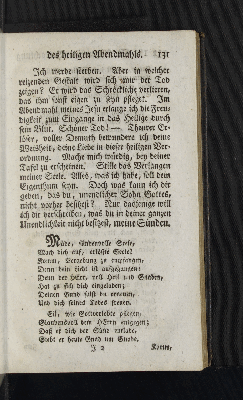 des heiligen Abendmahls. 131
Ich werde sterben. Aber in welcher
reizenden Gestalt wird sich mir der Tod
zeigen? Er wird das Schreckliche verlieren,
das ihm sonst eigen zu seyn pflegt. Im
Abendmahl meines Jesu erlange ich die Freu-
digkeit zum Eingange in das Heilige durch
sein Blut. Schöner Tod! — Theurer Er-
löser, voller Demuth bewundere ich deine
Weisheit, deine Liebe in dieser heiligen Ver-
ordnung. Mache mich würdig, bey deiner
Tafel zu erscheinen. Stille das Verlangen
meiner Seele. Alles, was ich habe, soll dein
Eigenthum seyn. Doch was kann ich dir
geben, das du, unendlicher Sohn Gottes,
nicht vorher besitzest? Nur dasjenige will
ich dir verschreiben, was du in deiner ganzen
Unendlichkeit nicht besitzest, meine Sünden.
Müde, sündenvolle Seele,
Mach dich auf, erlößte Seele!
Komm, Vergebung zu empfangen,
Denn dein Licht ist aufgegangen:
Denn der HErr, voll Heil und Gnaden,
Hat zu sich dich eingeladen;
Deinen Bund sollst du erneuen,
Und dich seines Todes freuen.
Eil, wie Gottverlobte pflegen,
Glaubensvoll dem HErrn entgegen;
Daß er dich der Sünd entlade,
Steht er heute Gnad um Gnade.
J 2 Komm,